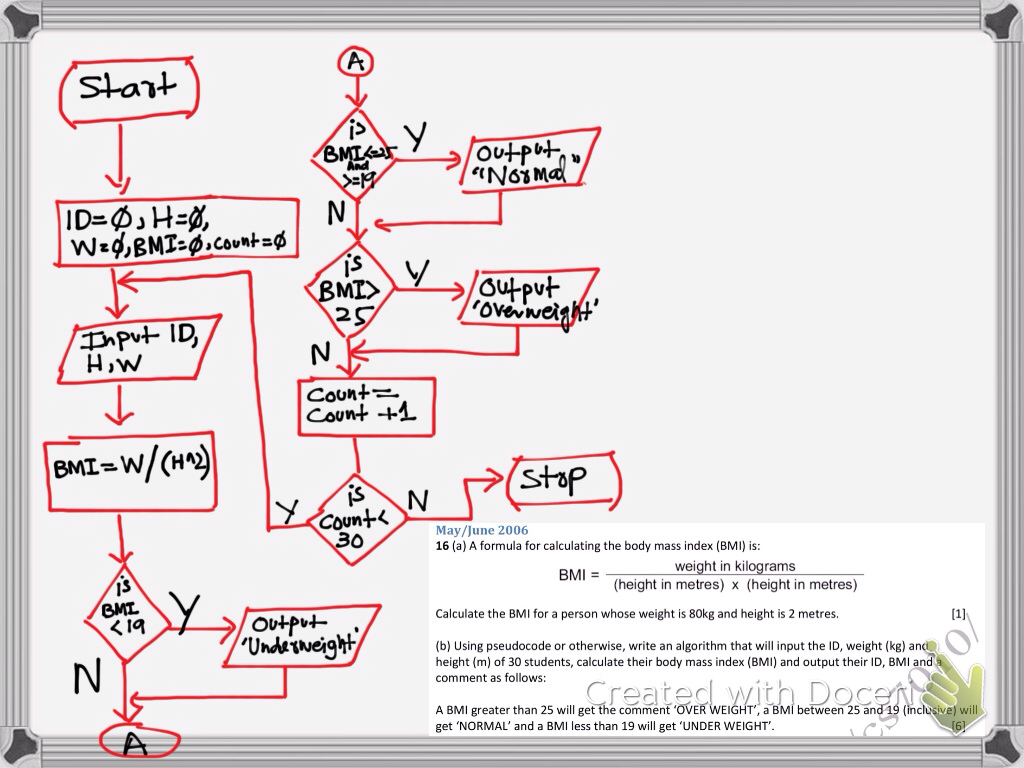 Start
ID=0, H=0,
W=0, BMI=0, count=0
Input ID,
H, W
BMI = W/(H^2)
is
BMI
<19
Y
Output
'Underweight'
N
A
A
is
BMI<=25
And
>=19
Y
Output
"Normal"
N
is
BMI>
25
Y
Output
'Overweight'
N
Count =
Count +1
is
Count<
30
Y
N
Stop
May/June 2006
16 (a) A formula for calculating the body mass index (BMI) is:
BMI = weight in kilograms
(height in metres) x (height in metres)
Calculate the BMI for a person whose weight is 80kg and height is 2 metres. [1]
(b) Using pseudocode or otherwise, write an algorithm that will input the ID, weight (kg) and
height (m) of 30 students, calculate their body mass index (BMI) and output their ID, BMI and a
comment as follows:
Created with Doceri
A BMI greater than 25 will get the comment ‘OVER WEIGHT’, a BMI between 25 and 19 (inclusive) will
get ‘NORMAL’ and a BMI less than 19 will get ‘UNDER WEIGHT’. [6]